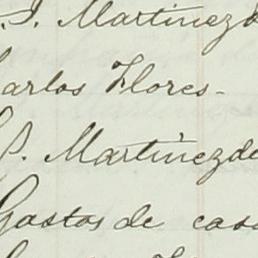 J. Martinez de
Carlos Flores -
P. Martinez de
Gastos de casa